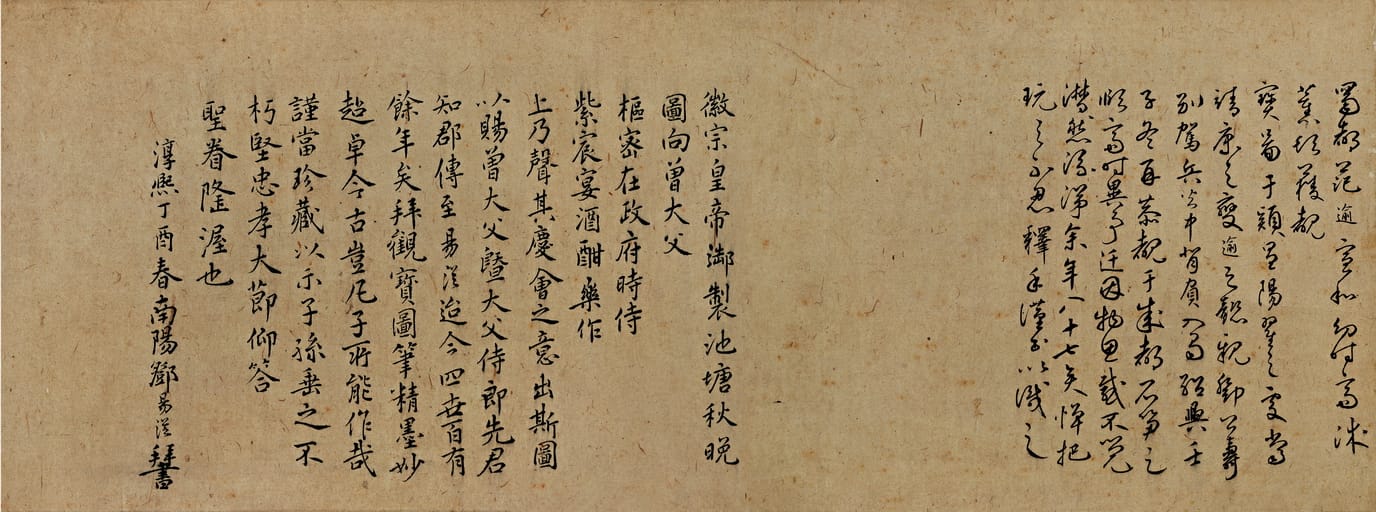 蜀都范逾宣和初時寓
獲覩
寶畵于潁昌陽翟之
靖康之變逾之親
別駕兵火中背負入蜀紹興壬
子冬再恭覩于成都石笋之
時異事遷因物思感不覺
潸然流涕余年八十七矣把
玩之不忍釋手謹書以識之
徽宗皇帝御製池塘秋晚
圖向曾大父
樞密在政府時侍
紫宸宴酒酣樂作
上乃聲其慶會之意出斯圖
以賜曾大父暨大父侍郎先君
知郡傳至易從迨今四世百有
餘年矣拜觀寶圖筆精墨妙
超卓今古豈凡子所能作哉
謹當珍藏以示子孫垂之不
朽堅忠孝大節仰答
聖眷隆渥也
淳熙丁酉春南陽鄧易從拜書